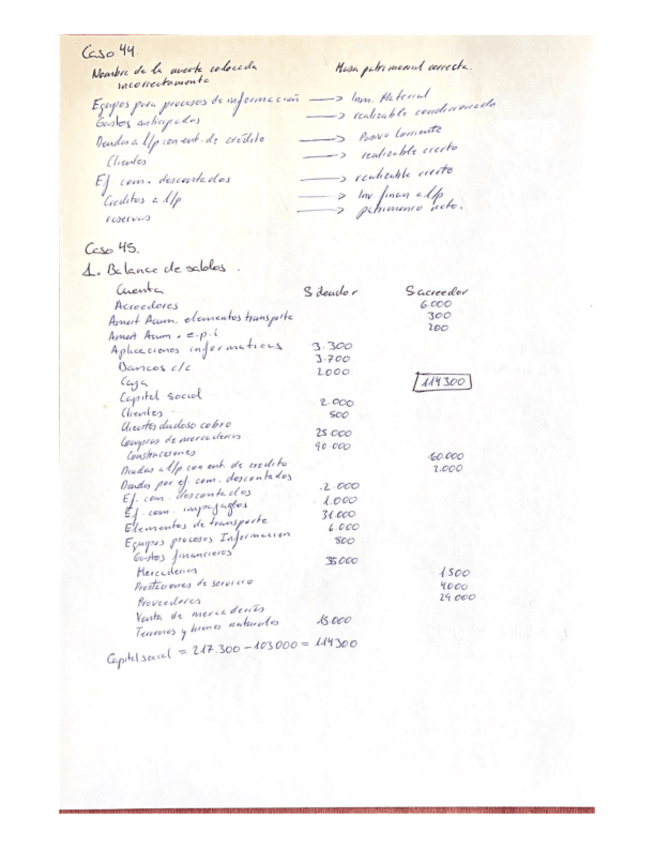 Caso 44.
Nombre de la cuenta colocada incorrectamente
Masa patrimonial correcta.
Equipos para procesos de información → Inm. Material
Gastos anticipados → realizable condicionado
Deudas a l/p con ent. de crédito → Pasivo Corriente
Clientes → realizable cierto
Ef. com. descontados → realizable cierto
Creditos a l/p → Inv. finan a l/p
reservas → patrimonio neto.
Caso 45.
1. Balance de saldos.
Cuenta S deudor S acreedor
Acreedores 6.000
Amort Acum. elementos transporte 300
Amort Acum. e.p.i 200
Aplicaciones informaticas 3.300
Bancos c/c 3.700
Caja 2000
Capital social 114300
Clientes 2.000
Clientes dudoso cobro 500
Compras de mercaderías 25.000
Construcciones 90.000
Deudas a l/p con ent. de credito 60.000
Deudas por ef. com. descontados 2.000
Ef. com. descontados 2.000
Ef. com. impagados 1.000
Elementos de transporte 31.000
Equipos procesos Informacion 6.000
Gastos financieros 800
Mercaderias 35000
Prestaciones de servicio 1500
Proveedores 4000
Venta de mercaderías 29.000
Terrenos y bienes naturales 15.000
Capital social = 217.300 - 103000 = 114300